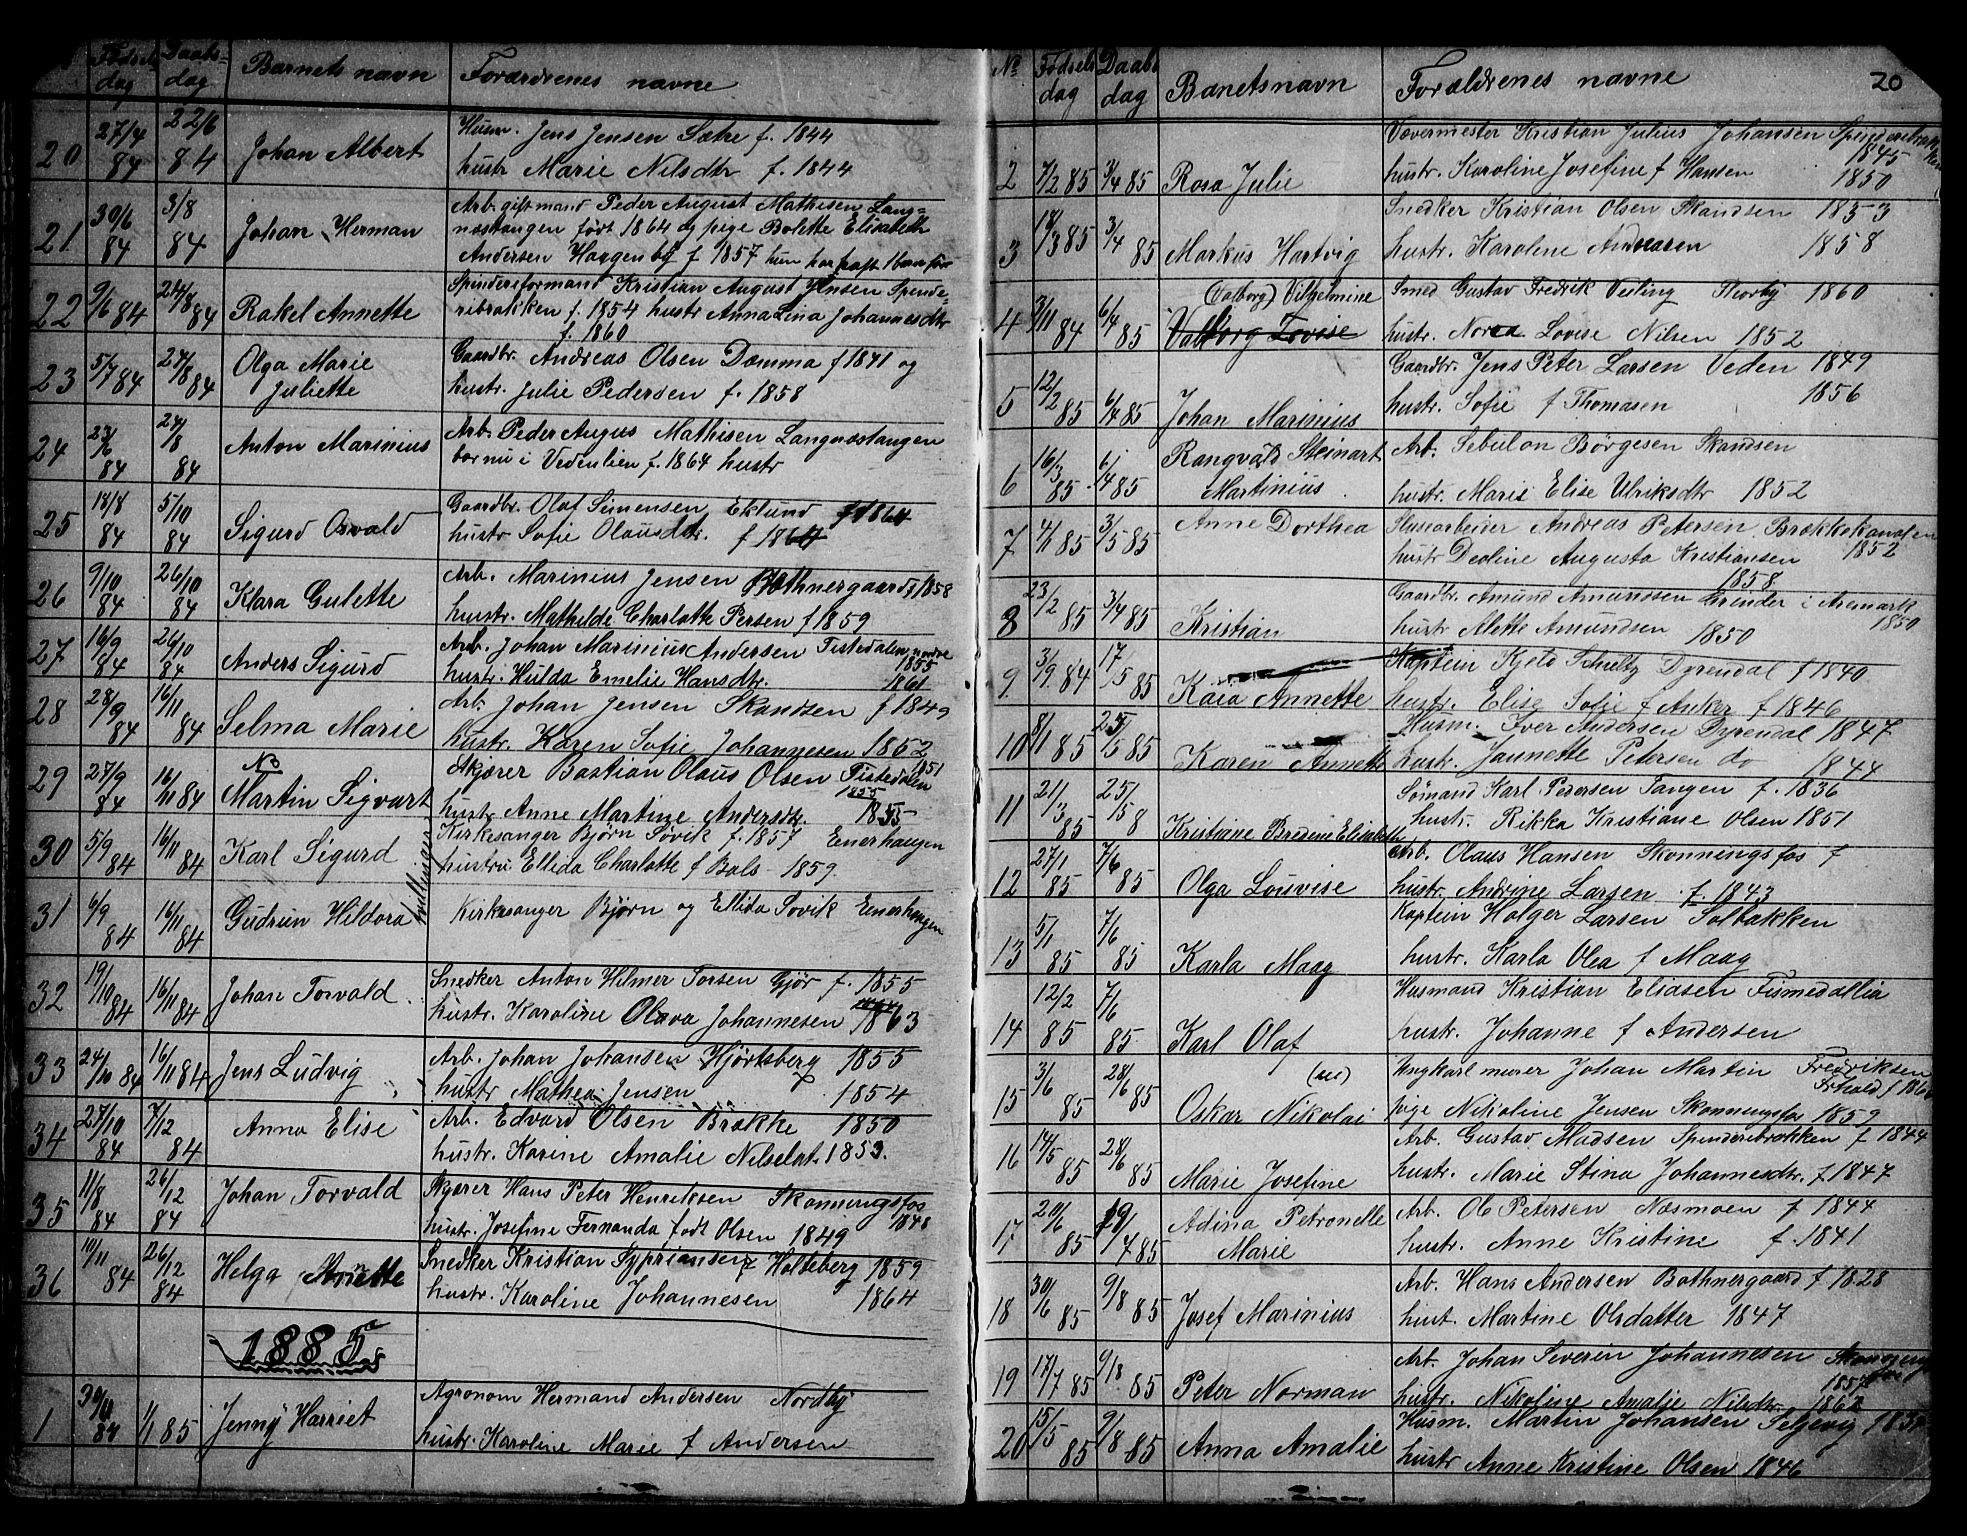 Fødsels dag Daabs- dag Barnets navn Forældrenes navne
20 27/4 84 22/6 84 Johan Albert Husm. Jens Jensen Sætre f. 1844
hustr Marie Nilsdtr f. 1844
21 30/6 84 3/8 84 Johan Herman Arb. giftmand Peder August Mathisen Lang=
næstangen født 1864 og pige Bolette Elisabeth
Andersen Haagenby f 1857 hun har haft 1 barn før
22 9/6 84 24/8 84 Rakel Annette Spinderiformand Kristian August Jensen Spinde-
ribrakken f. 1854 hustr Anna Lina Johannesdtr
f. 1860
23 5/7 84 24/8 84 Olga Marie Juliette Gaardbr. Andreas Olsen Damma f 1841 og
hustr. Julie Pedersen f. 1858
24 23/6 84 24/8 84 Anton Marinius Arb. Peder Augus Mathisen Langnæstangen
bor nu i Vedenlien f. 1864 hustr
25 18/8 84 5/10 84 Sigurd Osvald Gaardbr. Olaf Simensen Eklund f 1864
hustr Sofie Olausdtr. f 1864
26 9/10 84 26/10 84 Klara Gulette Arb. Marinius Jensen Bothnergaard f 1858
hustr. Mathilde Charlotte Persen f 1859
27 16/9 84 26/10 84 Anders Sigurd Arb. Johan Marinius Andersen Tistedalen nordre
1855
hustr. Hulda Emelie Hansdtr. 1861
28 28/9 84 16/11 84 Selma Marie Arb. Johan Jensen Skandsen f 1849
hustr. Karen Sofie Johannesen 1852
29 27/9 84 16/11 84 NB Martin Sigvart Skjører Bastian Olaus Olsen Tistedalen 1851
1855
hustr. Anne Martine Andersdtr. 1855
30 5/9 84 16/11 84 Karl Sigurd Kirkesanger Bjørn Søvik f. 1857 Enerhaugen
hustru Ellida Charlotte f Bals 1859.
tvillinger
31 6/9 84 16/11 84 Gudrun Hildora Kirkesanger Bjørn og Ellida Søvik Enerhaugen
32 19/10 84 16/11 84 Johan Torvald Snedker Anton Hilmer Torsen Gjør f. 1855
hustr. Karoline Olava Johannesen 1863
33 24/10 84 16/11 84 Jens Ludvig Arb. Johan Johansen Hjørtsberg 1855
hustr Mathea Jensen 1854
34 27/10 84 7/12 84 Anna Elise Arb. Edvard Olsen Brække 1850
hustr. Karine Amalie Nilsdat. 1853.
35 11/8 84 26/12 84 Johan Torvald Skjører Hans Peter Henriksen Skonningsfos
1848
hustr. Josefine Fernanda født Olsen 1849
36 10/11 84 26/12 84 Helga Anette Snedker Kristian Sypriansen Holteberg 1859
hustr. Karoline Johannesen 1864
1885
1 30/11 84 1/1 85 Jenny Harriet Agronom Hermand Andersen Nordby
hustr. Karoline Marie f Andersen
No Fødsels dag Daabs dag Banetsnavn Forældrenes navne 20
2 7/2 85 3/4 85 Rosa Julie Vævermester Kristian Julius Johansen Spinderibrakken
1845
hustr. Karoline Josefine f Hansen 1850
3 18/3 85 3/4 85 Markus Hartvig Snedker Kristian Olsen Skandsen 1853
hustr. Karoline Andersen 1858
4 3/11 84 6/4 85 (Valborg) Vilhelmine Smed Gustav Fredrik Veiling Thorby 1860
Valborg Lovise hustr. Nora Lovise Nilsen 1852
5 12/2 85 6/4 85 Johan Marinius Gaardbr. Jens Peter Larsen Veden 1849
hustr. Sofie f Thomasen 1856
6 16/3 85 6/4 85 Rangvald Steinart Martinius Arb. Sebulon Börgesen Skandsen
hustr. Marie Elise Ulriksdtr 1852
7 4/11 85 3/5 85 Anne Dorthea Slusearbeider Andreas Petersen Brækkekanalen
1852
hustr Deoline Augusta Kristiansen
1858
8 23/2 85 3/4 85 Kristian Gaardbr. Amund Amundsen Grinder i Aremark
1850
hustr Alette Amundsen 1850
9 3/9 84 17/5 85 Kaia Annette Kaptein Kjeld Schultz Dyrendal f 1840
hustr. Elise Sofie f Anker f 1846
10 8/1 85 25/5 85 Karen Annette Husm. Iver Andersen Dyrendal 1847
hustr. Jannette Petersen do 1844
11 21/3 85 25/5 8 Kristiane Bredine Elisabeth Sömand Karl Pedersen Tangen f. 1836
hustr. Rikka Kristiane Olsen 1851
12 27/1 85 7/6 85 Olga Louvise Arb. Olaus Hansen Skonningsfos f
hustr. Andrine Larsen f. 1843
13 5/1 85 7/6 85 Karla Maag Kaptein Holger Larsen Solbakken
hustr. Karla Olea f Maag
14 12/2 85 7/6 85 Karl Olaf Husmand Kristian Eliasen Fismedallia
hustr. Johanne f Andersen
15 3/6 85 28/6 85 (uæ) Oskar Nikolai Ungkarl murer Johan Martin Fredriksen
Frhald f 186
pige Nikoline Jensen Skonningsfos 1859
16 14/5 85 28/6 85 Marie Josefine Arb. Gustav Madsen Spinderibrakken f 1844
hustr. Marie Stina Johannesdtr. f. 1847
17 20/6 85 19/7 85 Adina Petronelle Marie Arb. Ole Petersen Næsmoen f 1844
hustr. Anne Kristine f. 1841
18 30/6 85 9/8 85 Josef Marinius Arb. Hans Andersen Bothnergaard f 1828
hust. Martine Olsdatter 1847
19 17/7 85 9/8 85 Peter Norman Arb. Johan Severin Johannesen Skonningsfos
1857
hustr. Nikoline Amalie Nilsdtr. 1862
20 15/5 85 9/8 85 Anna Amalie Husm. Martin Johansen Seljevig 183
hustr Anne Kristine Olsen 1846